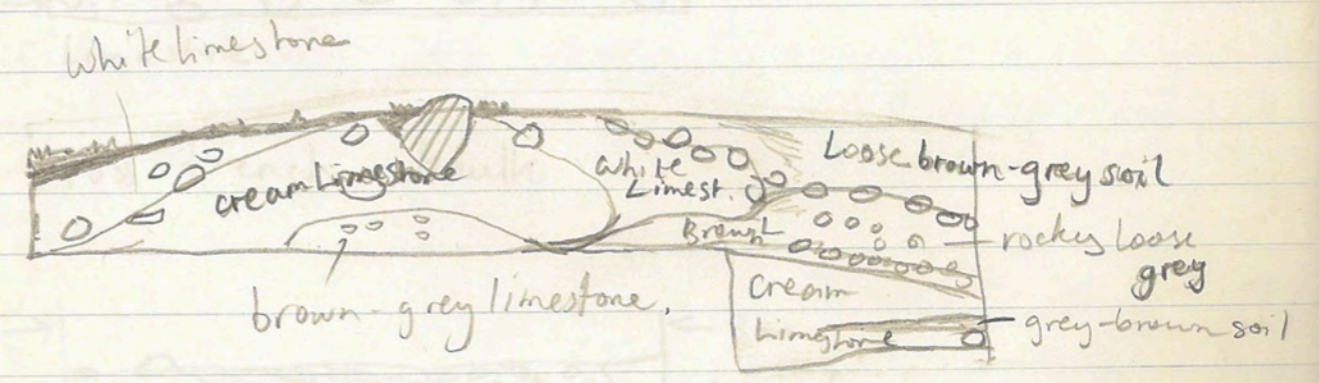 white limestone
cream Limestone
white
Limest.
Loose brown-grey soil
Brown
rocky loose
grey
brown-grey limestone.
cream
limestone
grey-brown soil